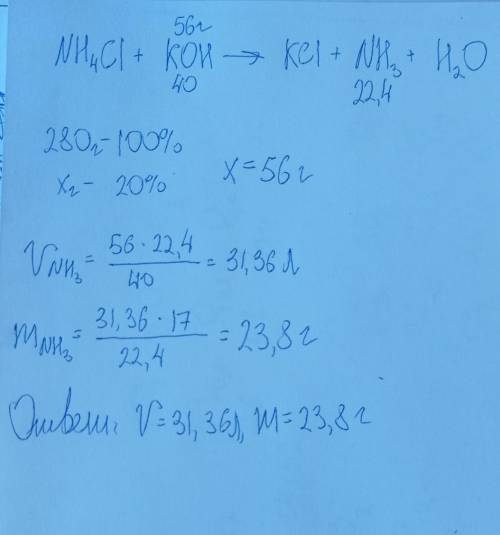 56г
NH₄Cl + KOH → KCl + NH₃ + H₂O
40 22,4
280г - 100%
xг - 20% x = 56г
V NH₃ = 56 · 22,4 / 40 = 31,36 л
m NH₃ = 31,36 · 17 / 22,4 = 23,8 г
Ответ: V = 31,36л, m = 23,8 г